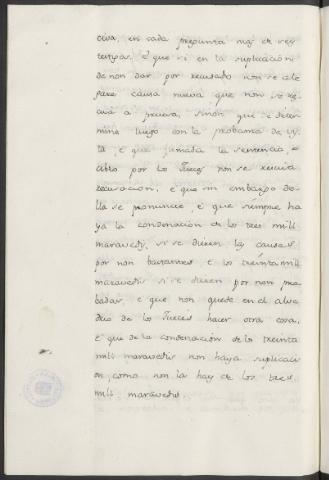 cion, en cada pregunta mas de seis
testigos. E que si en la suplicacion
de non dar por recusado non se ale
gare causa nueva que non se re
civa a prueva, sinon que se deter
mine luego con la probanza de vis
ta, e que firmada la sentencia, e
auto por los Jueces non se reciva
recusacion, e que sin embargo de
lla se pronuncie, e que siempre ha
ya la condenacion de los tres mill
maravedis, si se dieren las causas
por non bastantes e los treinta mill
maravedis si se dieren por non pro
badas, e que non quede en el alve
drio de los Jueces hacer otra cosa.
E que de la condenacion de los treinta
mill maravedis non haya suplicaci
on, como non la hay de los tres
mill maravedis.